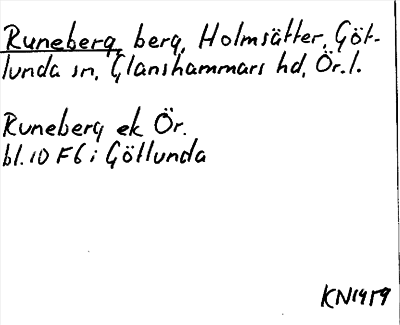 Runeberg, berg, Holmsätter, Göt-
lunda sn, Glanshammars hd, Ör. l.
Runeberg ek Ör.
bl. 10 F6 i Götlunda
KN1959